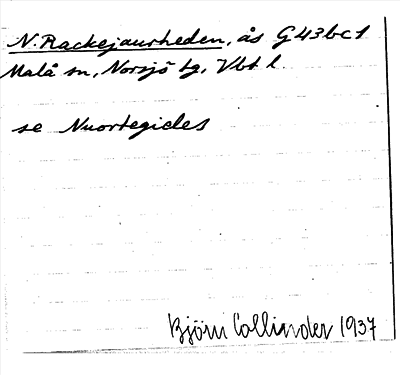 N. Rackejaurheden, ås G43bc1
Malå sn, Norsjö tg, Vbt l.
se Nuortegicles
Björn Collinder 1937